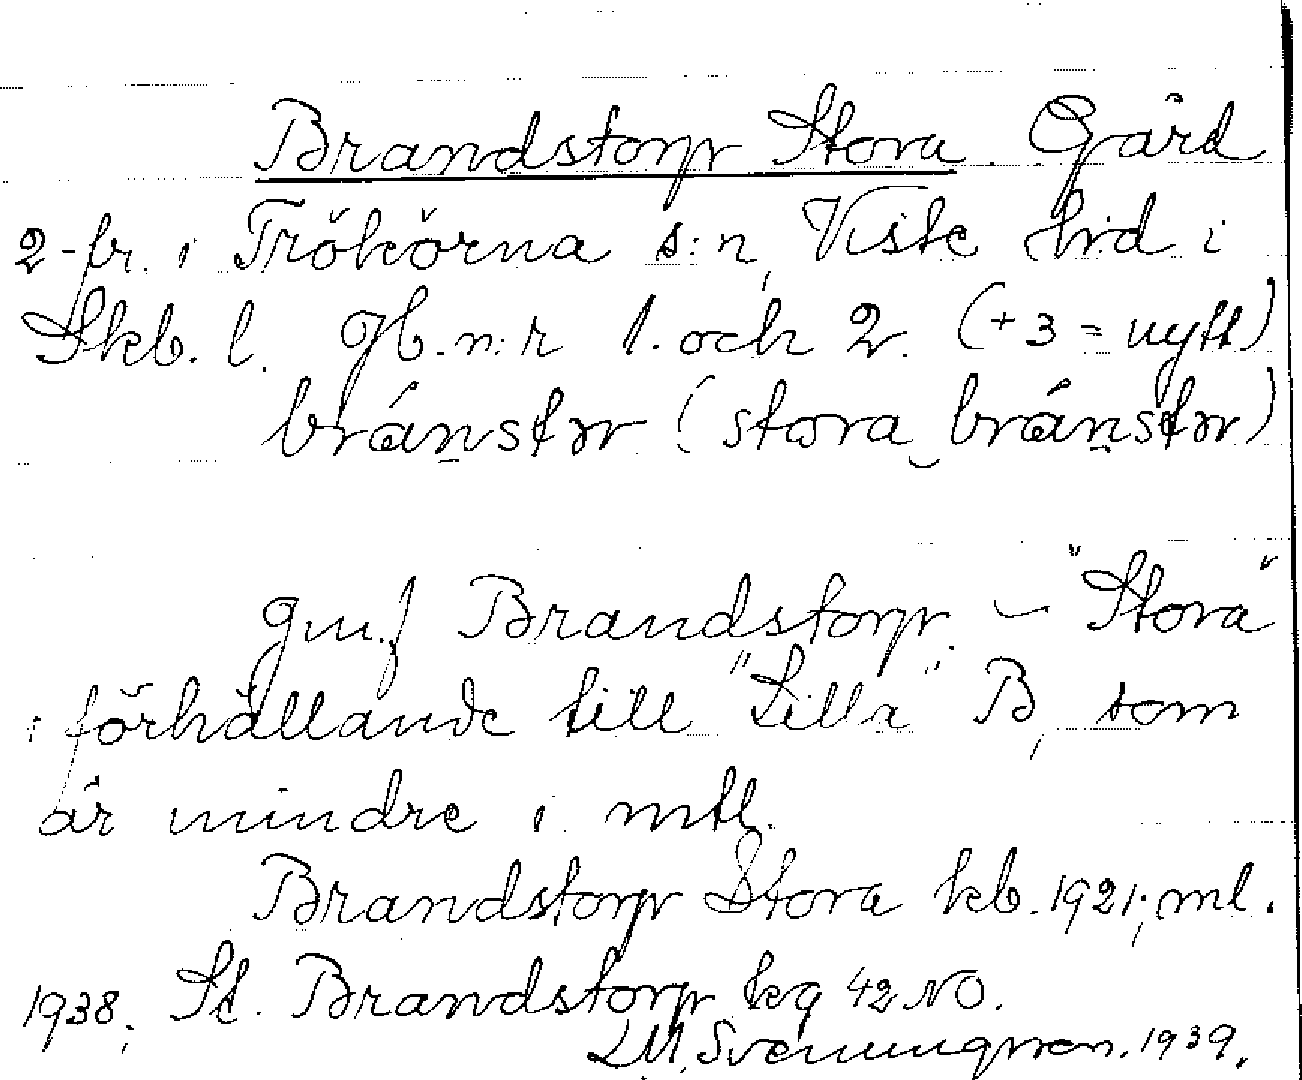 Brandstorp Stora. Gård
2-br. i Trökörna s:n, Viste hrd i
Skb. l. Jb.n:r 1. och 2. (+3 = nytt)
bránstɷr (stora bránstɷr)
gm.f Brandstorp. – "Stora"
i förhållande till "Lilla" B, som
är mindre i mtl.
Brandstorp Stora kb. 1921; ml.
1938; St. Brandstorp kg 42 NO.
LM. Svenungsson. 1939.